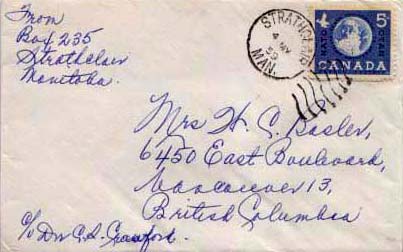 From
Box 235
Strathclair
Manitoba.
STRATHCLAIR
MAN.
NATO
OTAN
5¢
CANADA
Mrs H. C.
6450 East Boulevard,
Vancouver 13,
British Columbia
c/o Dr C. S. Crawford.